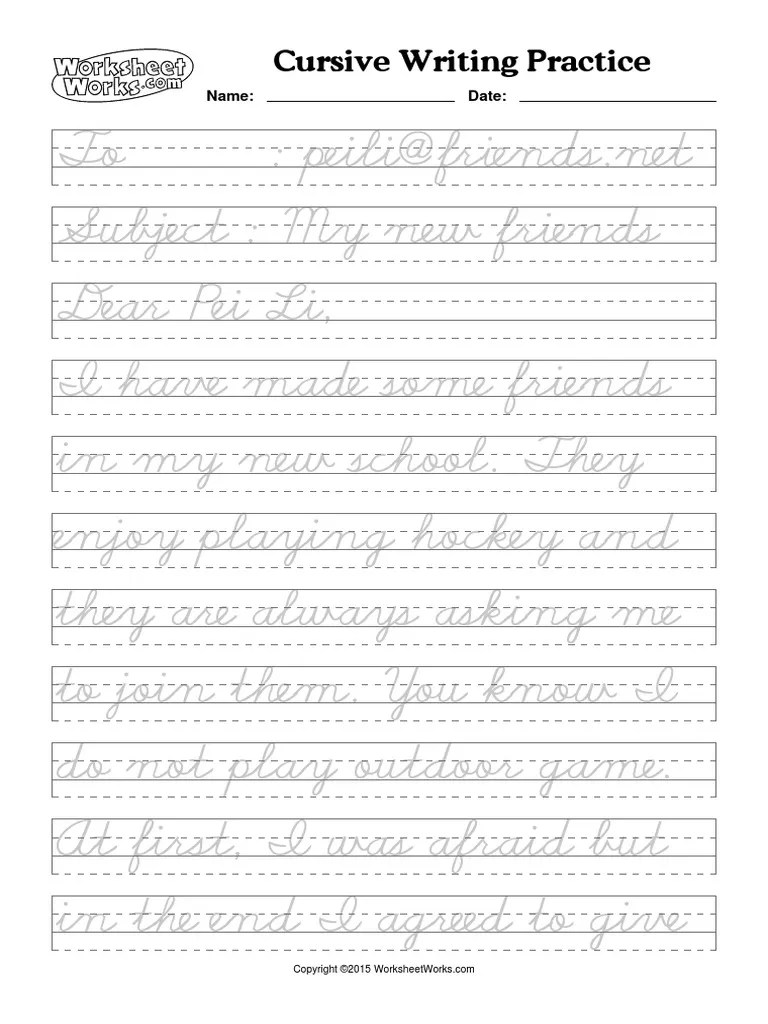 Worksheet Works.com
Cursive Writing Practice
Name: Date:
To : peili@friends.net
Subject : My new friends
Dear Pei Li,
I have made some friends
in my new school. They
enjoy playing hockey and
they are always asking me
to join them. You know I
do not play outdoor game.
At first, I was afraid but
in the end I agreed to give
Copyright ©2015 WorksheetWorks.com